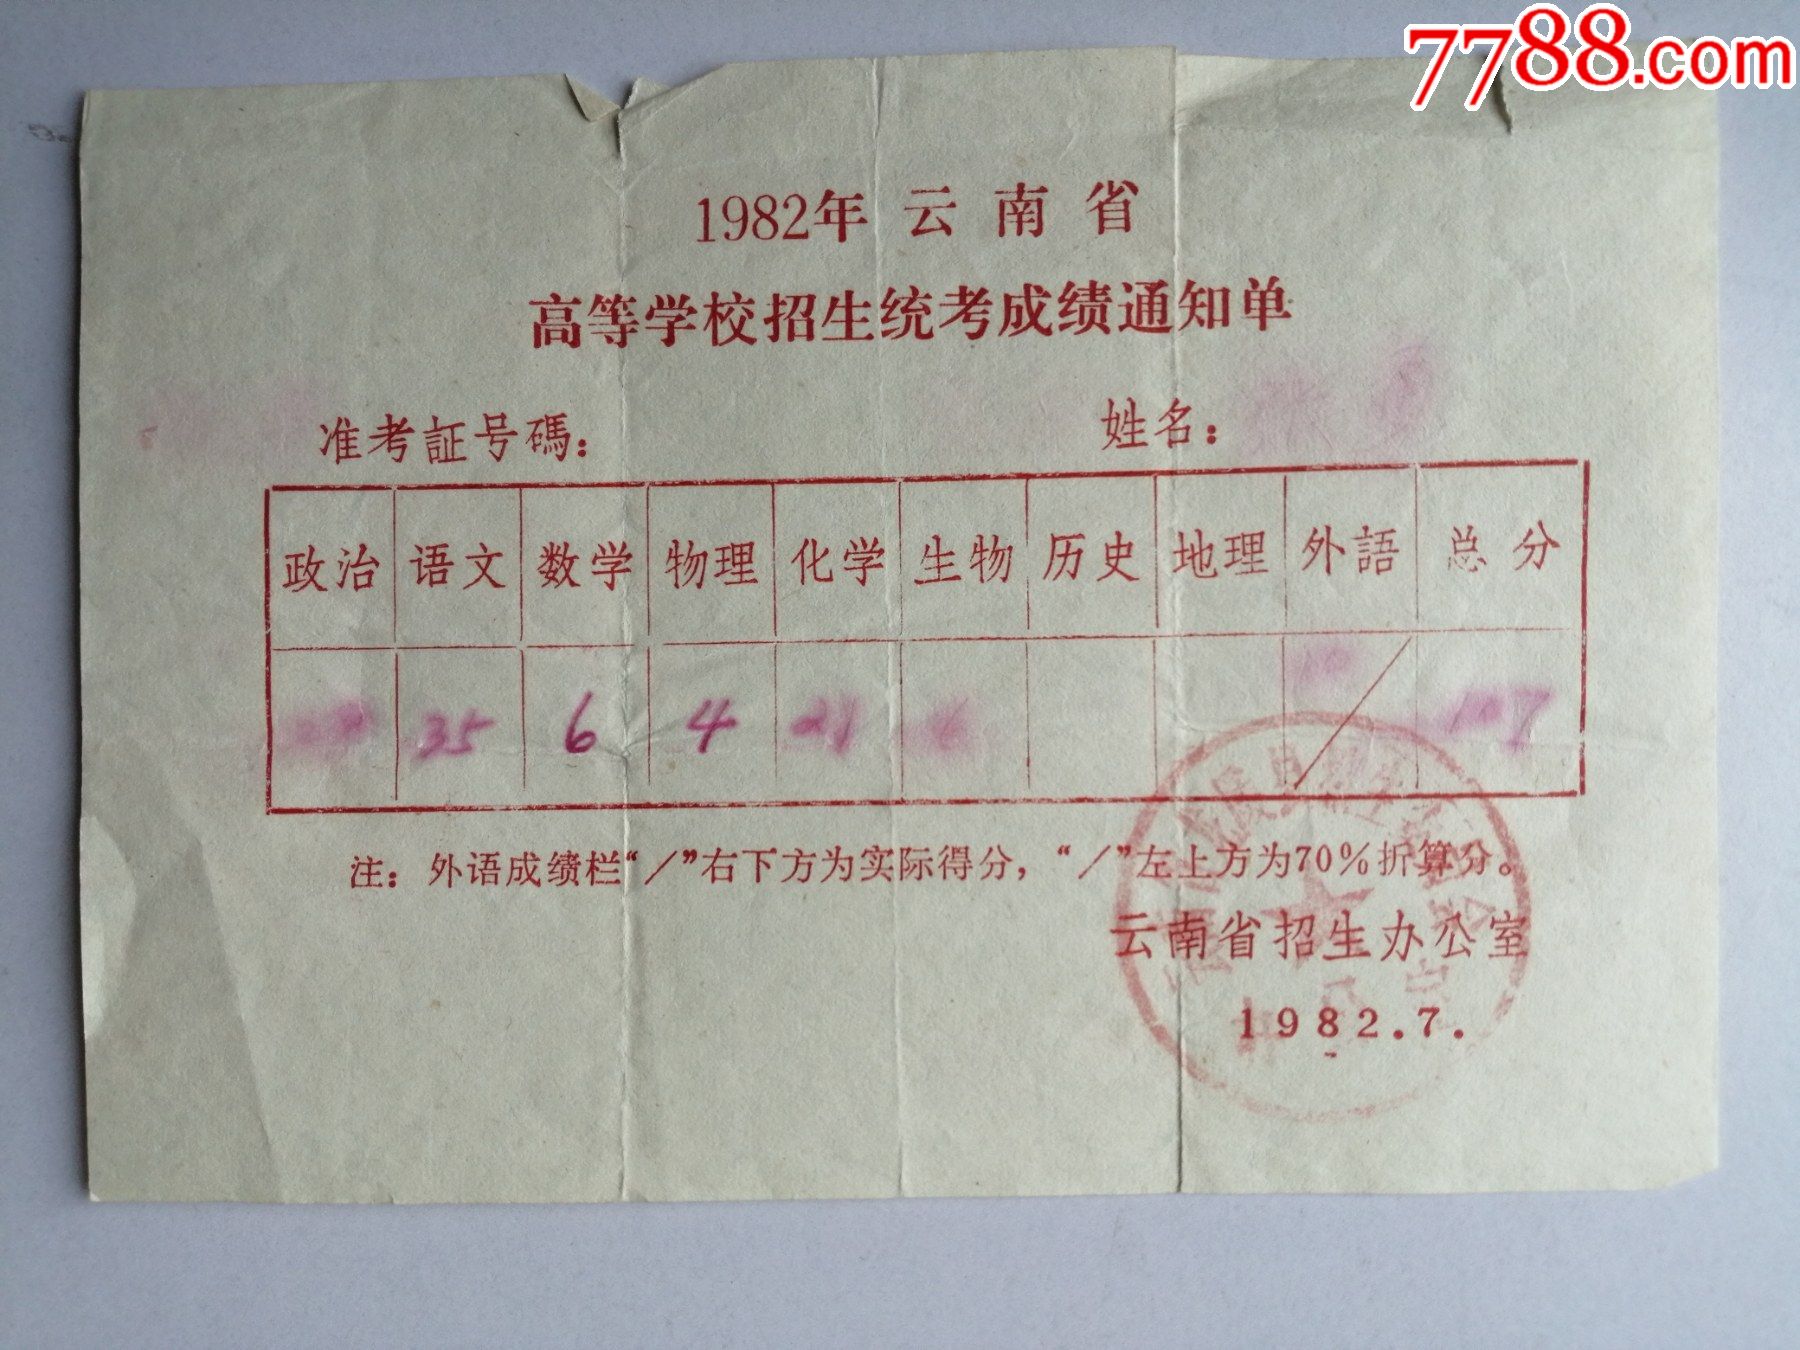 7788.com
1982年云南省
高等学校招生统考成绩通知单
准考証号碼： 姓名：
政治 语文 数学 物理 化学 生物 历史 地理 外語 总分
35 6 4 21 10 107
注：外语成绩栏“／”右下方为实际得分，“／”左上方为70%折算分。
云南省招生办公室
1982.7.